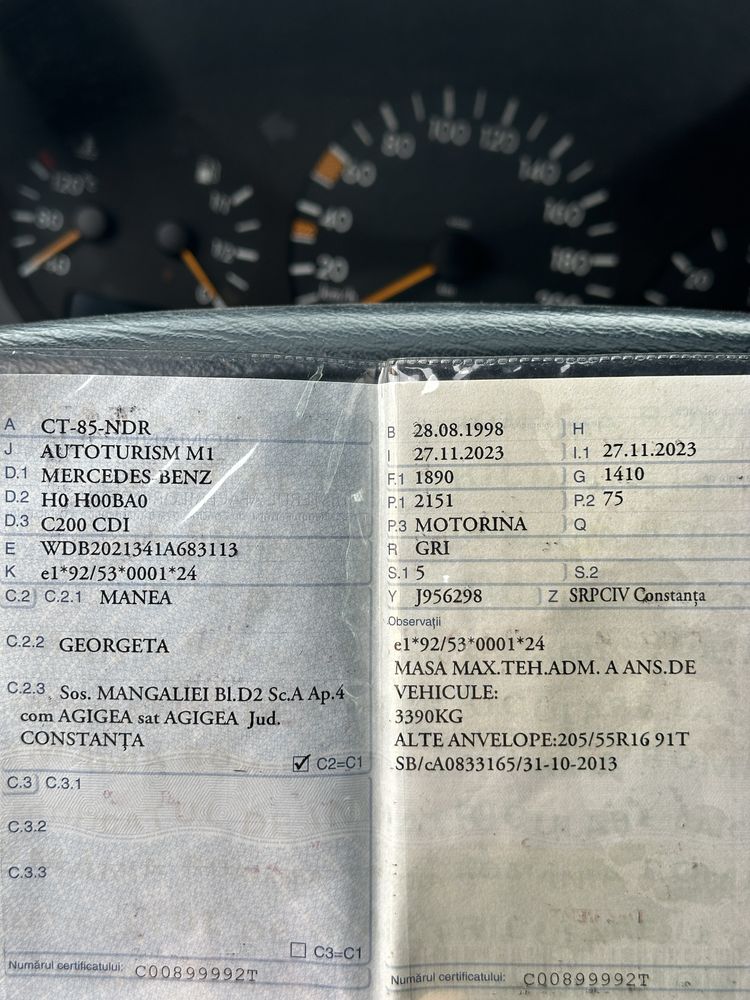 120°C
80
40
1/1
1/2
0
20
40
60
80
100
120
140
160
180
20
A CT-85-NDR
J AUTOTURISM M1
D.1 MERCEDES BENZ
D.2 H0 H00BA0
D.3 C200 CDI
E WDB2021341A683113
K e1*92/53*0001*24
C.2 C.2.1 MANEA
C.2.2 GEORGETA
C.2.3 Sos. MANGALIEI Bl.D2 Sc.A Ap.4
com AGIGEA sat AGIGEA Jud.
CONSTANȚA
C2=C1
C.3 C.3.1
C.3.2
C.3.3
C3=C1
Numărul certificatului: C00899992T
B 28.08.1998 H
I 27.11.2023 I.1 27.11.2023
F.1 1890 G 1410
P.1 2151 P.2 75
P.3 MOTORINA Q
R GRI
S.1 5 S.2
Y J956298 Z SRPCIV Constanța
Observații
e1*92/53*0001*24
MASA MAX.TEH.ADM. A ANS.DE
VEHICULE:
3390KG
ALTE ANVELOPE:205/55R16 91T
SB/cA0833165/31-10-2013
Numărul certificatului: C00899992T